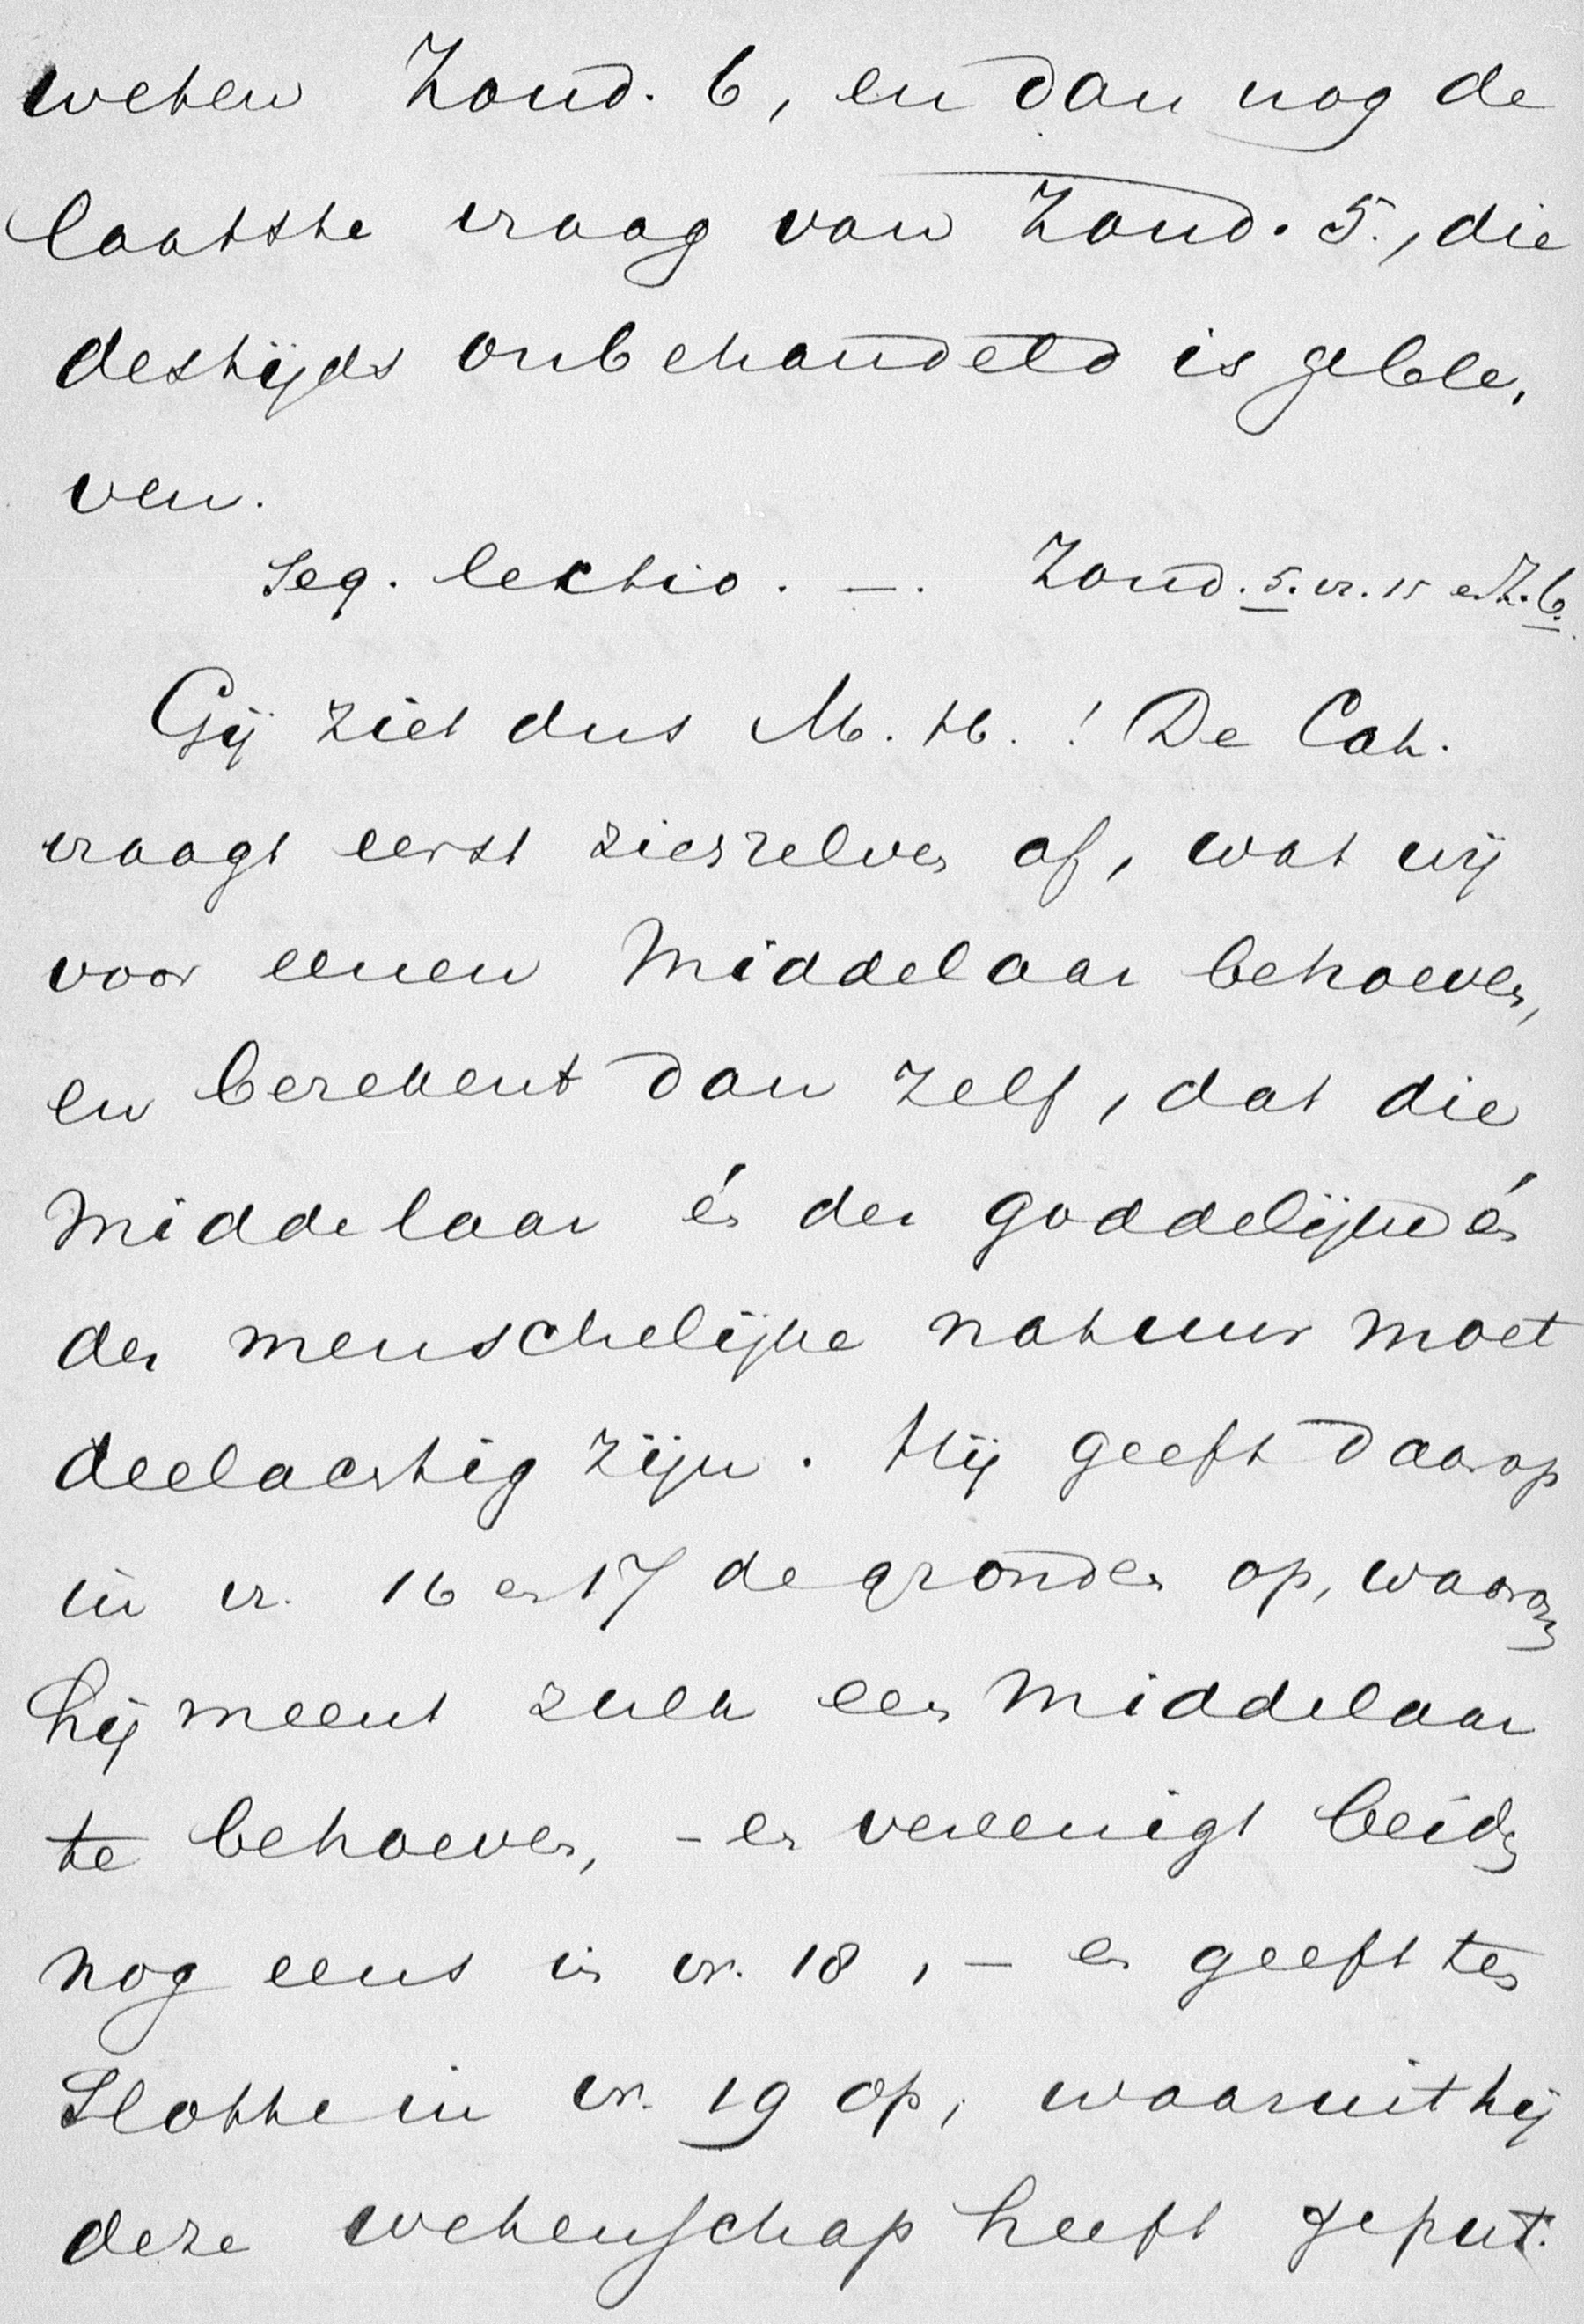 weten Zond. 6, en dan nog de
laatste vraag van Zond. 5., die
destijds onbehandeld is geble-
ven.
Seq. lectio. —. Zond. 5. vr. 15 en Z. 6.
Gij ziet dus M. H.! De Cat.
vraagt eerst zichzelven af, wat wij
voor eenen Middelaar behoeven,
en berekent dan zelf, dat die
Middelaar én der goddelijke én
der menschelijke natuur moet
deelachtig zijn. Hij geeft daarop
in vr. 16 en 17 de gronden op, waarom
hij meent zulk een Middelaar
te behoeven, - en vereenigt beide
nog eens in vr. 18, - en geeft ten
Slotte in vr. 19 op, waaruit hij
deze wetenschap heeft geput.